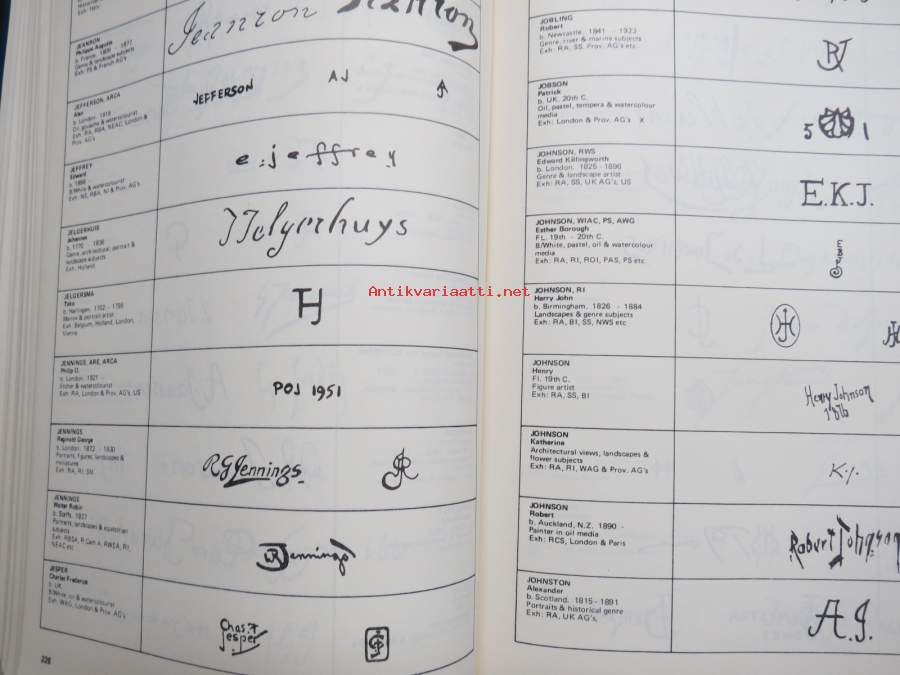 JEANRON
Philippe Auguste
b. France. 1809 - 1877
Genre & landscape subjects
Exh: PS & French AG's
Jeanron
JEFFERSON, ARCA
Alan
b. London. 1918 -
Oil, gouache & watercolourist
Exh: RA, RBA, NEAC, London &
Prov. AG's
JEFFERSON
AJ
JEFFREY
Edward
b. 1898 -
B/White & watercolourist
Exh: NS, RBA, NI & Prov. AG's
e.jeffrey
JELGERHUIS
Johannes
b. 1770 - 1836
Genre, architectural, portrait &
landscape subjects
Exh: Holland
JJelgerhuys
JELGERSMA
Tako
b. Harlingen, 1702 - 1795
Marine & portrait artist
Exh: Belgium, Holland, London,
Vienna
TJ
JENNINGS, ARE, ARCA
Philip O.
b. London. 1921 -
Etcher & watercolourist
Exh: RA, London & Prov. AG's, US
POJ 1951
JENNINGS
Reginald George
b. London. 1872 - 1930
Portraits, figures, landscapes &
miniatures
Exh: RA, RI, SM
RGJennings
JENNINGS
Walter Robin
b. Staffs. 1927 -
Portraits, landscapes & equestrian
subjects
Exh: RBSA, R.Cam.A, RWEA, RI,
NEAC etc
WRJennings
JESPER
Charles Frederick
b. UK
B/White, oil & watercolourist
Exh: WAG, London & Prov. AG's
Chas. F
Jesper
226
Antikvariaatti.net
JOBLING
Robert
b. Newcastle. 1841 - 1923
Genre, river & marine subjects
Exh: RA, SS, Prov. AG's etc.
RJ
JOBSON
Patrick
b. UK. 20th C.
Oil, pastel, tempera & watercolour
media
Exh: London & Prov. AG's X
5 1
JOHNSON, RWS
Edward Killingworth
b. London. 1825 - 1896
Genre & landscape artist
Exh: RA, SS, UK AG's, US
E.K.J.
JOHNSON, WIAC, PS, AWG
Esther Borough
FL. 19th - 20th C.
B/White, pastel, oil & watercolour
media
Exh: RA, RI, ROI, PAS, PS etc
JOHNSON, RI
Harry John
b. Birmingham. 1826 - 1884
Landscapes & genre subjects
Exh: RA, BI, SS, NWS etc
HJ
HJ
JOHNSON
Henry
Fl. 19th C.
Figure artist
Exh: RA, SS, BI
Henry Johnson
1876
JOHNSON
Katherine
Architectural views, landscapes &
flower subjects
Exh: RA, RI, WAG & Prov. AG's
K.J.
JOHNSON
Robert
b. Auckland, N.Z. 1890 -
Painter in oil media
Exh: RCS, London & Paris
Robert Johnson
JOHNSTON
Alexander
b. Scotland. 1815 - 1891
Portraits & historical genre
Exh: RA, UK AG's,
A.J.